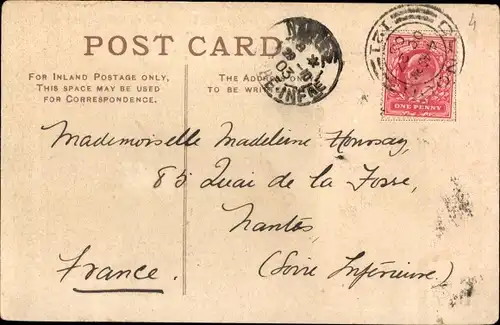 POST CARD
FOR INLAND POSTAGE ONLY,
THIS SPACE MAY BE USED
FOR CORRESPONDENCE.
THE ADDRESS ONLY
TO BE WRITTEN
ONE PENNY
4
Mademoiselle Madeleine
85 Quai de la Fosse,
Nantes
(Loire Inférieure.)
France.